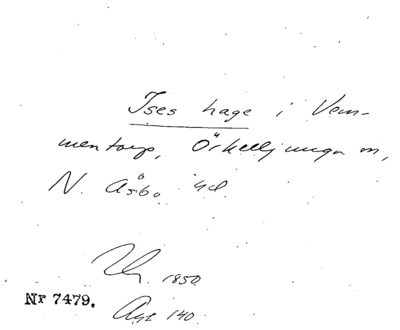 Ises hage i Vem-
mentorp, Örkelljunga sn,
N. Åsbo hd.
1850
Nr 7479.
140